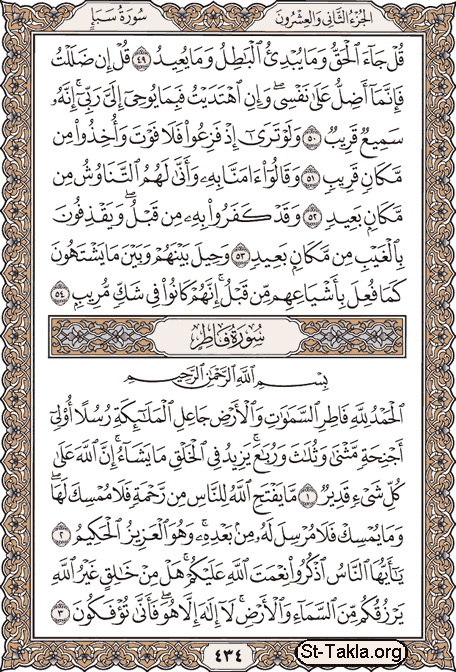 سُورَةُ سَبَإٍ الجُزْءُ الثَّانِي وَالعِشْرُونَ
قُلْ جَآءَ ٱلْحَقُّ وَمَا يُبْدِئُ ٱلْبَٰطِلُ وَمَا يُعِيدُ ٤٩ قُلْ إِن ضَلَلْتُ
فَإِنَّمَآ أَضِلُّ عَلَىٰ نَفْسِىۖ وَإِنِ ٱهْتَدَيْتُ فَبِمَا يُوحِىٓ إِلَىَّ رَبِّىٓۚ إِنَّهُۥ
سَمِيعٌ قَرِيبٌ ٥٠ وَلَوْ تَرَىٰٓ إِذْ فَزِعُوا۟ فَلَا فَوْتَ وَأُخِذُوا۟ مِن
مَّكَانٍ قَرِيبٍ ٥١ وَقَالُوٓا۟ ءَامَنَّا بِهِۦ وَأَنَّىٰ لَهُمُ ٱلتَّنَاوُشُ مِن
مَّكَانٍۭ بَعِيدٍ ٥٢ وَقَدْ كَفَرُوا۟ بِهِۦ مِن قَبْلُۖ وَيَقْذِفُونَ
بِٱلْغَيْبِ مِن مَّكَانٍۭ بَعِيدٍ ٥٣ وَحِيلَ بَيْنَهُمْ وَبَيْنَ مَا يَشْتَهُونَ
كَمَا فُعِلَ بِأَشْيَاعِهِم مِّن قَبْلُۚ إِنَّهُمْ كَانُوا۟ فِى شَكٍّ مُّرِيبٍۭ ٥٤
سُورَةُ فَاطِرٍ
بِسْمِ ٱللَّهِ ٱلرَّحْمَٰنِ ٱلرَّحِيمِ
ٱلْحَمْدُ لِلَّهِ فَاطِرِ ٱلسَّمَٰوَٰتِ وَٱلْأَرْضِ جَاعِلِ ٱلْمَلَٰٓئِكَةِ رُسُلًا أُو۟لِىٓ
أَجْنِحَةٍ مَّثْنَىٰ وَثُلَٰثَ وَرُبَٰعَۚ يَزِيدُ فِى ٱلْخَلْقِ مَا يَشَآءُۚ إِنَّ ٱللَّهَ عَلَىٰ
كُلِّ شَىْءٍ قَدِيرٌ ١ مَّا يَفْتَحِ ٱللَّهُ لِلنَّاسِ مِن رَّحْمَةٍ فَلَا مُمْسِكَ لَهَاۖ
وَمَا يُمْسِكْ فَلَا مُرْسِلَ لَهُۥ مِنۢ بَعْدِهِۦۚ وَهُوَ ٱلْعَزِيزُ ٱلْحَكِيمُ ٢
يَٰٓأَيُّهَا ٱلنَّاسُ ٱذْكُرُوا۟ نِعْمَتَ ٱللَّهِ عَلَيْكُمْۚ هَلْ مِنْ خَٰلِقٍ غَيْرُ ٱللَّهِ
يَرْزُقُكُم مِّنَ ٱلسَّمَآءِ وَٱلْأَرْضِۚ لَآ إِلَٰهَ إِلَّا هُوَۖ فَأَنَّىٰ تُؤْفَكُونَ ٣
٤٣٤
St-Takla.org